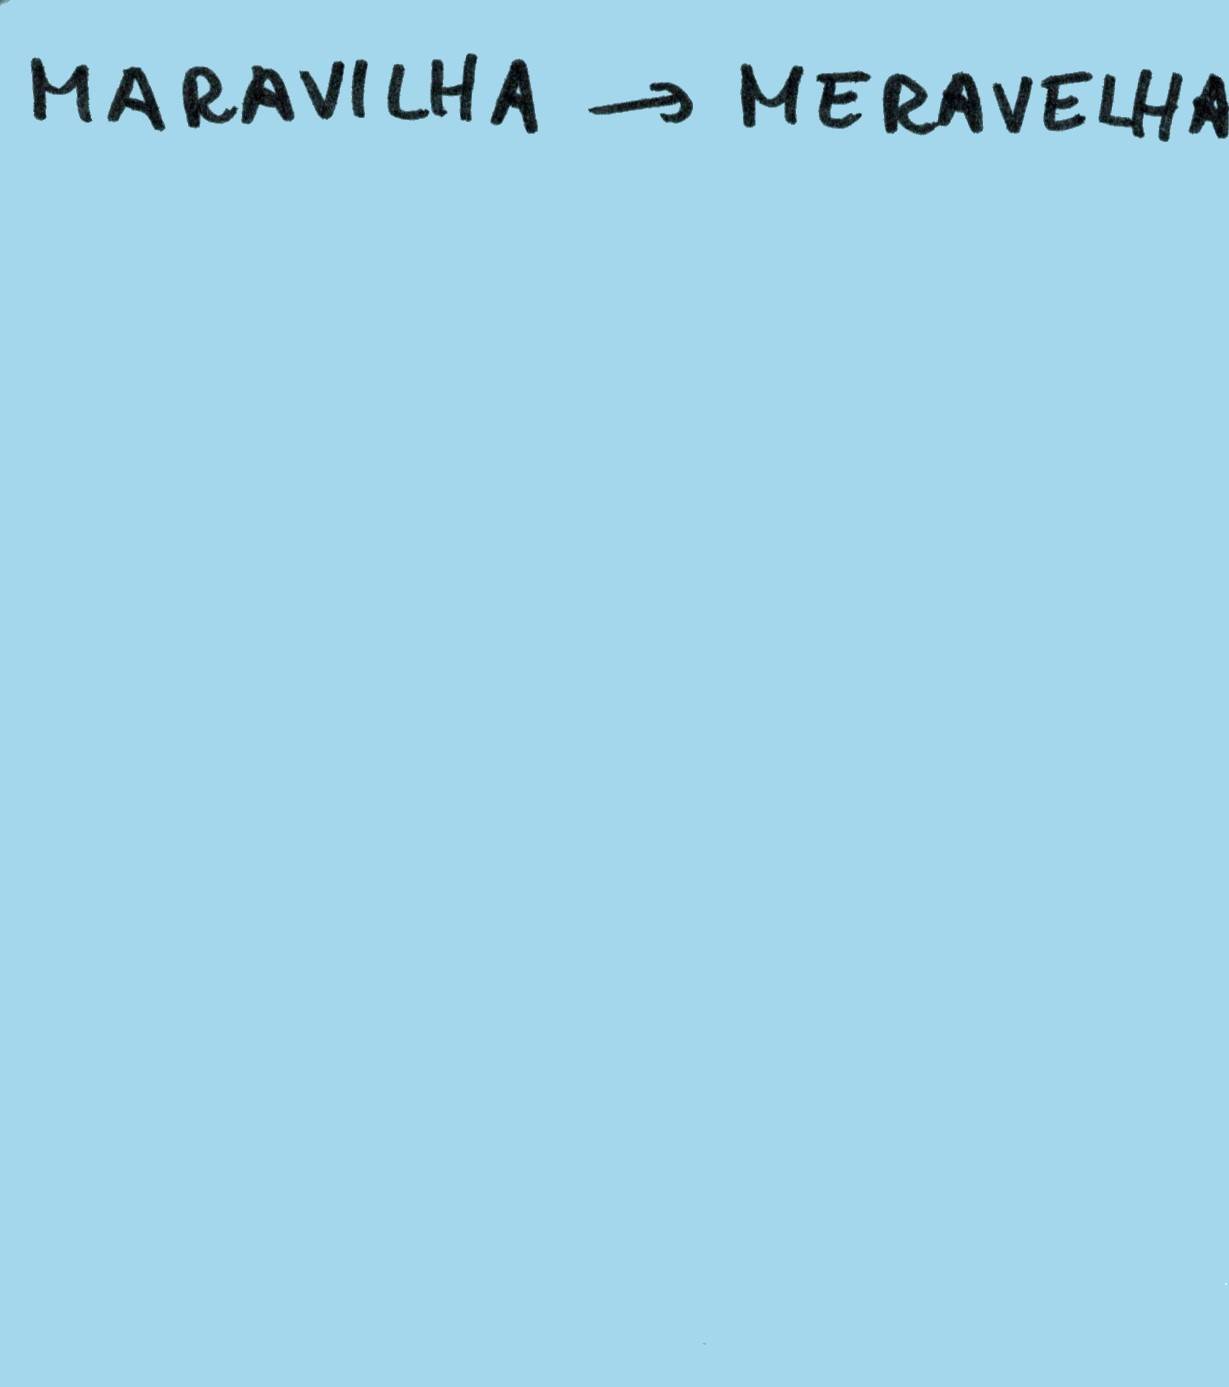 MARAVILHA → MERAVELHA